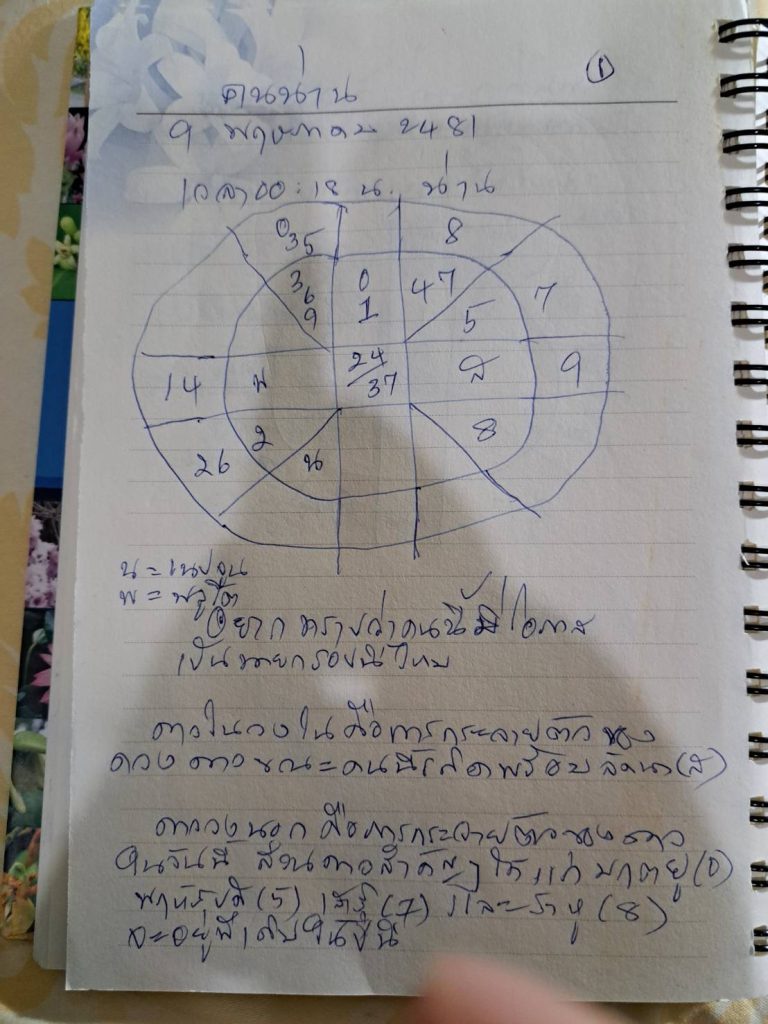 ①
คนน่าน
9 พฤษภาคม 2481
เวลา 00:18 น. น่าน
0
35
8
3
6
9
0
1
47
5
7
14
พ
24/37
ส
9
26
2
น
8
น = เนปจูน
พ = พลูโต
อยากทราบว่าคนนี้มีโอกาส
เป็นนายกรอบนี้ไหม
ดาวในวงในคือการกระจายตัวของ
ดวงดาวขณะคนนี้เกิดพร้อมลัคนา (ส)
ดาววงนอกคือการกระจายตัวของดาว
ในวันนี้ ส่วนดาวสำคัญๆ ได้แก่ มฤตยู (0)
พฤหัสบดี (5) เสาร์ (7) และราหู (8)
จะอยู่ที่เดิมในปีนี้